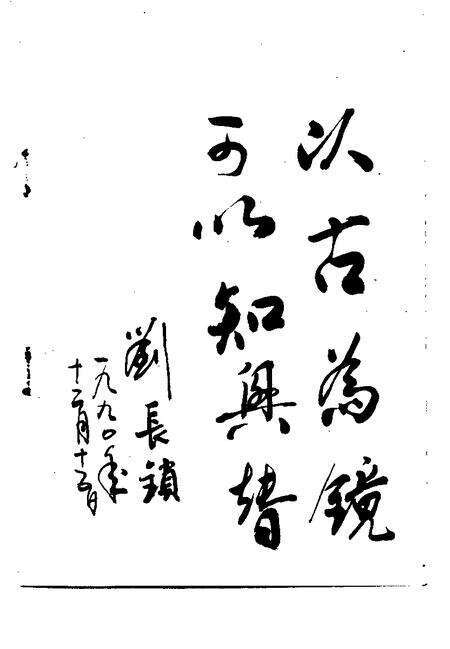 以古為鏡
可以知興替
劉長鎖
一九九〇年
十二月十二日